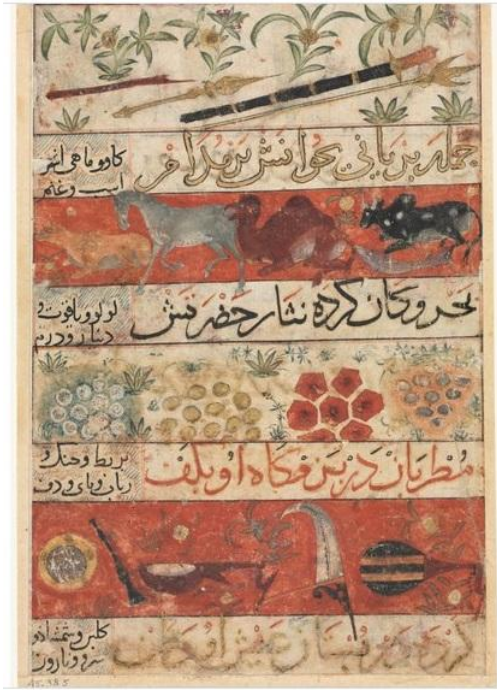 جمله بریانی بخوانش بر مدام
کاو و ماهی اشتر
اسب و غنم
بحر و کان کرده نثار حضرتش
لولو و یاقوت و
دینار و درم
مطربان در بزمکاه او بکف
بربط و چنک و
ربان و نای و دف
کرده در عیش او
کلبن و شمشاد و
سرو و نارون
45.385